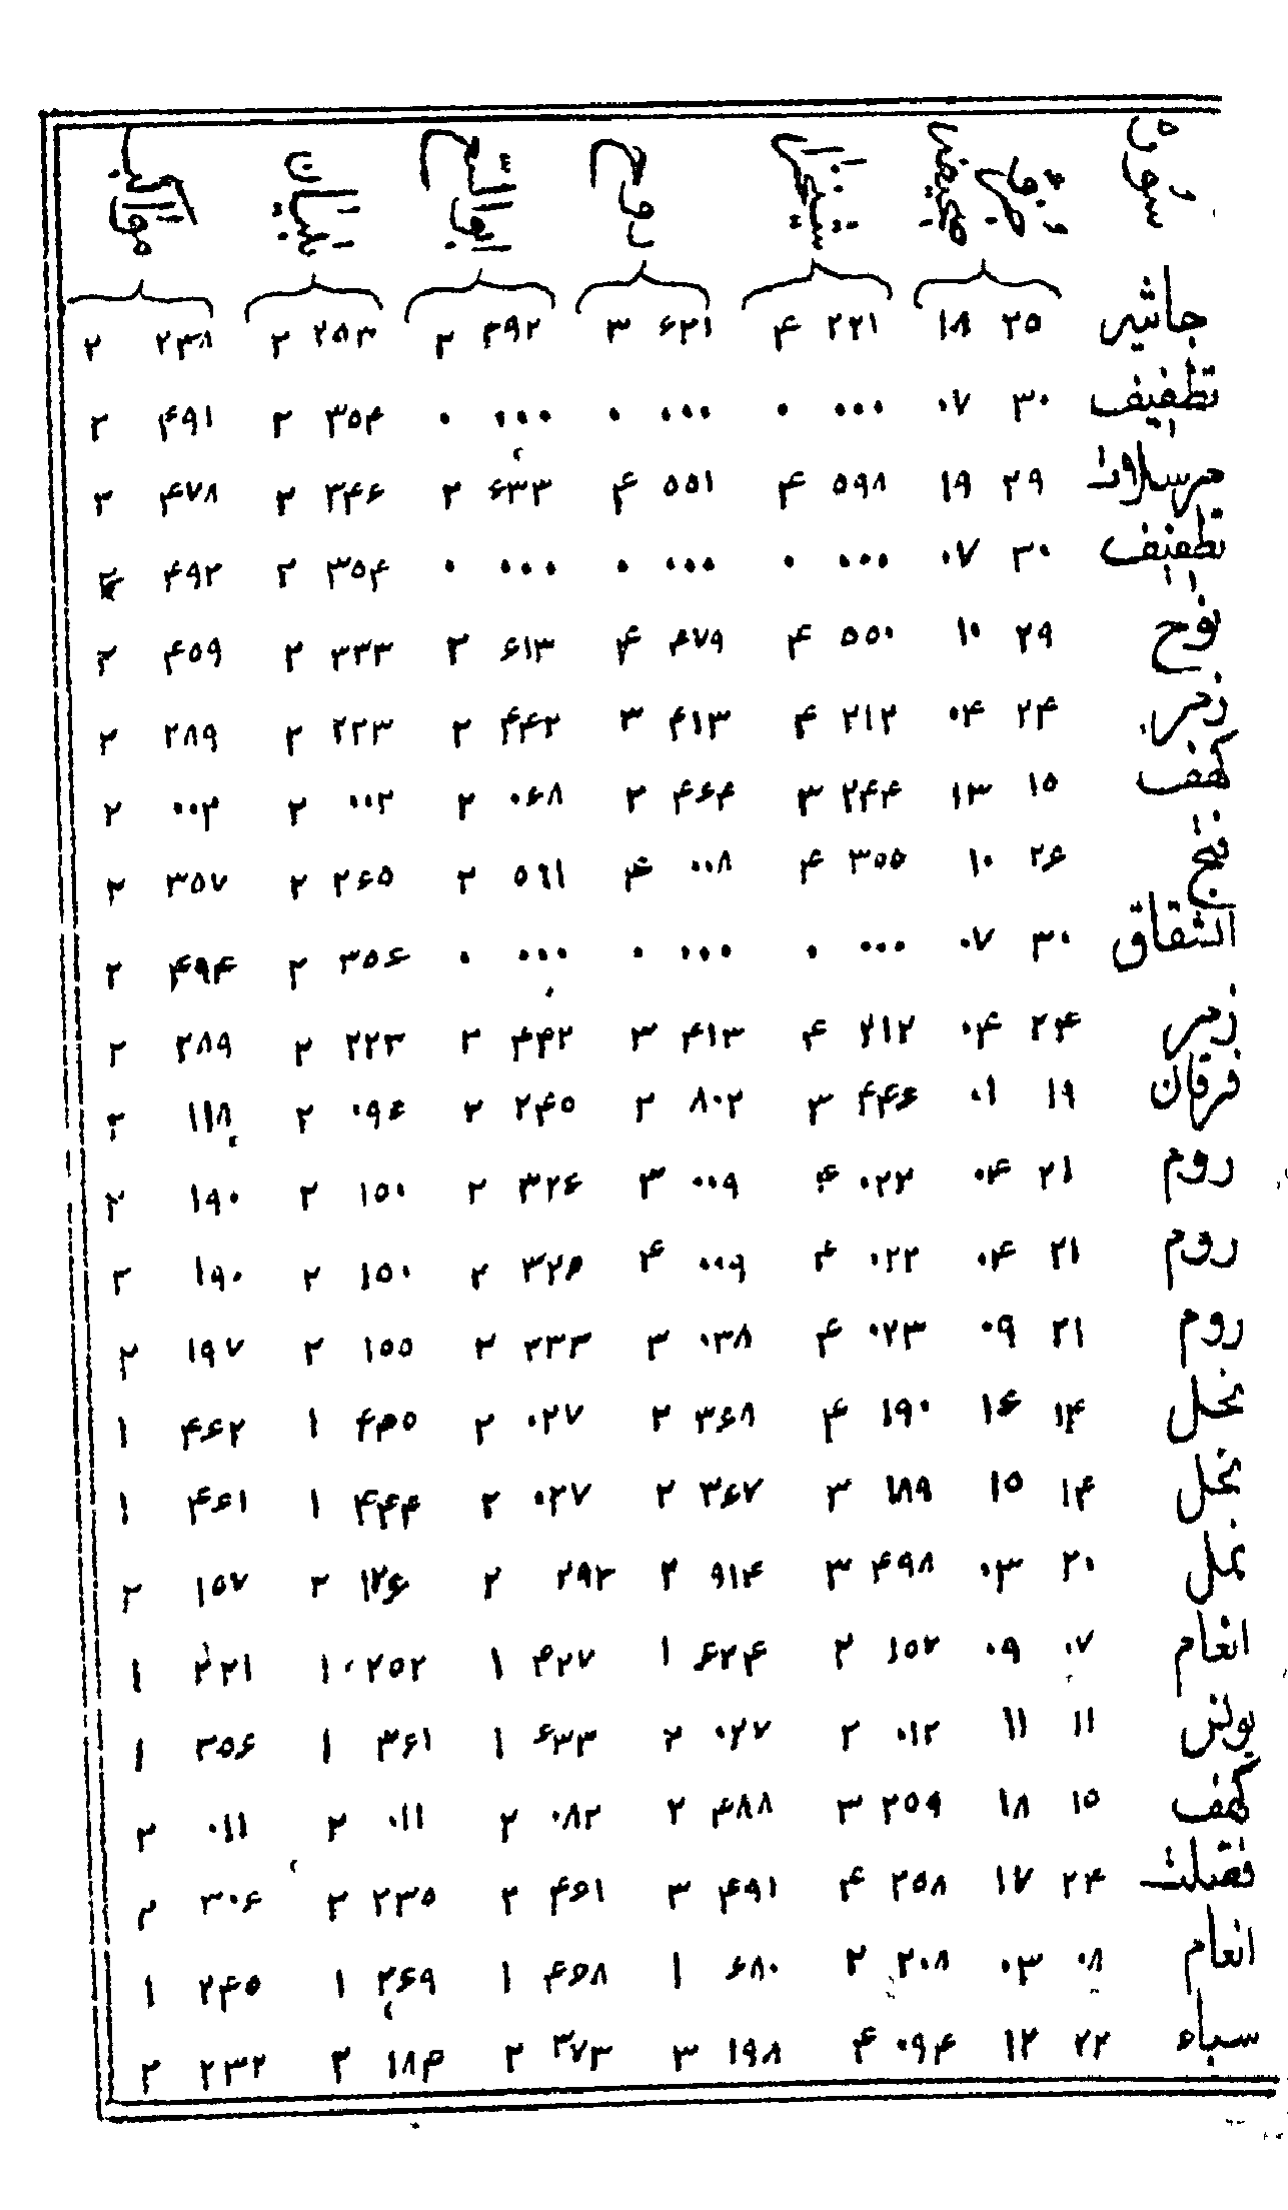 سوره
جاثیر ۲۵ ۱۸ ۲۲۱ ۴ ۶۲۱ ۳ ۳۹۲ ۲ ۲۵۳ ۲ ۲۳۸ ۲
تطفیف ۳۰ ۰۷ ۰۰۰ ۰ ۰۰۰ ۰ ۰۰۰ ۰ ۳۵۴ ۲ ۴۹۱ ۲
مرسلات ۲۹ ۱۹ ۵۹۸ ۴ ۵۵۱ ۴ ۶۳۳ ۲ ۳۴۶ ۲ ۴۷۸ ۲
تطفیف ۳۰ ۰۷ ۰۰۰ ۰ ۰۰۰ ۰ ۰۰۰ ۰ ۳۵۴ ۲ ۴۹۲
نوح ۲۹ ۱۰ ۵۵۰ ۴ ۴۷۹ ۴ ۶۱۳ ۲ ۳۳۳ ۲ ۴۵۹ ۲
زمر ۲۴ ۰۴ ۲۱۲ ۴ ۴۱۳ ۳ ۴۴۲ ۲ ۲۲۳ ۲ ۲۸۹ ۲
کهف ۱۵ ۱۳ ۲۴۴ ۳ ۴۶۴ ۲ ۰۶۸ ۲ ۰۰۲ ۲ ۰۰۲ ۲
فتح ۲۶ ۱۰ ۳۵۵ ۴ ۰۰۸ ۴ ۵۶۱ ۲ ۲۶۵ ۲ ۳۵۷ ۲
انشقاق ۳۰ ۰۷ ۰۰۰ ۰ ۰۰۰ ۰ ۰۰۰ ۰ ۳۵۶ ۲ ۴۹۴ ۲
زمر ۲۴ ۰۴ ۲۱۲ ۴ ۴۱۳ ۳ ۴۴۲ ۲ ۲۲۳ ۲ ۲۸۹ ۲
فرقان ۱۹ ۰۱ ۴۴۶ ۳ ۸۰۲ ۲ ۲۴۵ ۲ ۰۹۶ ۲ ۱۱۸ ۲
روم ۲۱ ۰۴ ۰۲۲ ۴ ۰۰۹ ۳ ۳۲۶ ۲ ۱۵۰ ۲ ۱۹۰ ۲
روم ۲۱ ۰۴ ۰۲۲ ۴ ۰۰۹ ۴ ۳۲۶ ۲ ۱۵۰ ۲ ۱۹۰ ۲
روم ۲۱ ۰۹ ۰۲۳ ۴ ۰۳۸ ۳ ۳۳۳ ۲ ۱۵۵ ۲ ۱۹۷ ۲
نحل ۱۴ ۱۶ ۱۹۰ ۴ ۳۶۸ ۲ ۰۲۷ ۲ ۴۶۵ ۱ ۴۶۲ ۱
نحل ۱۴ ۱۵ ۱۸۹ ۳ ۳۶۷ ۲ ۰۲۷ ۲ ۴۶۴ ۱ ۴۶۱ ۱
نمل ۲۰ ۰۳ ۴۹۸ ۳ ۹۱۴ ۲ ۲۹۲ ۲ ۱۲۶ ۲ ۱۵۷ ۲
انعام ۰۷ ۰۹ ۱۵۲ ۲ ۶۲۴ ۱ ۴۲۷ ۱ ۲۵۲ ۱ ۲۲۱ ۱
یونس ۱۱ ۱۱ ۰۱۲ ۲ ۰۲۷ ۲ ۶۳۳ ۱ ۳۶۱ ۱ ۳۵۶ ۱
کهف ۱۵ ۱۸ ۲۵۹ ۳ ۴۸۸ ۲ ۰۸۲ ۲ ۰۱۱ ۲ ۰۱۱ ۲
فصلت ۲۴ ۱۷ ۲۵۸ ۴ ۴۹۱ ۳ ۴۶۱ ۲ ۲۳۵ ۲ ۳۰۶ ۲
انعام ۰۸ ۰۳ ۲۰۸ ۲ ۶۸۰ ۱ ۴۶۸ ۱ ۲۶۹ ۱ ۲۴۵ ۱
سباء ۲۲ ۱۲ ۰۹۴ ۴ ۱۹۸ ۳ ۳۷۳ ۲ ۱۸۴ ۲ ۲۳۲ ۲